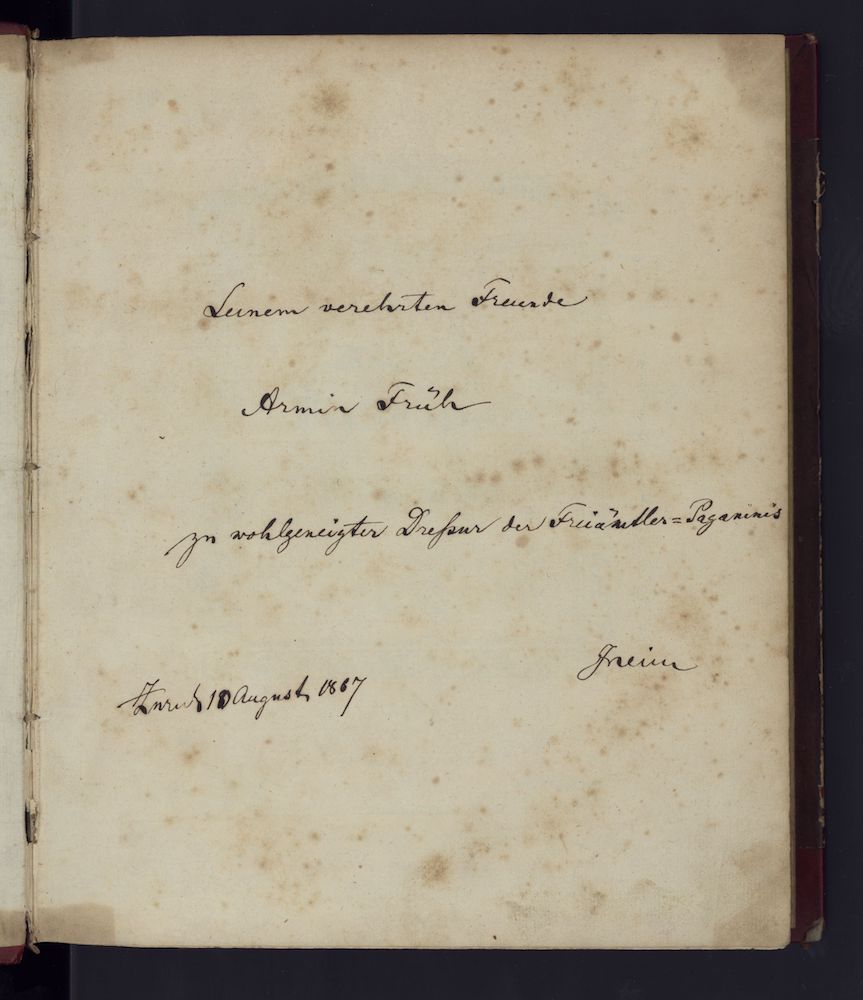 Seinem verehrten Freunde
Armin Früh
zu wohlgeneigter Dreſsur der Freiämtler=Paganinis
JHeim
Zürich 10 August 1867